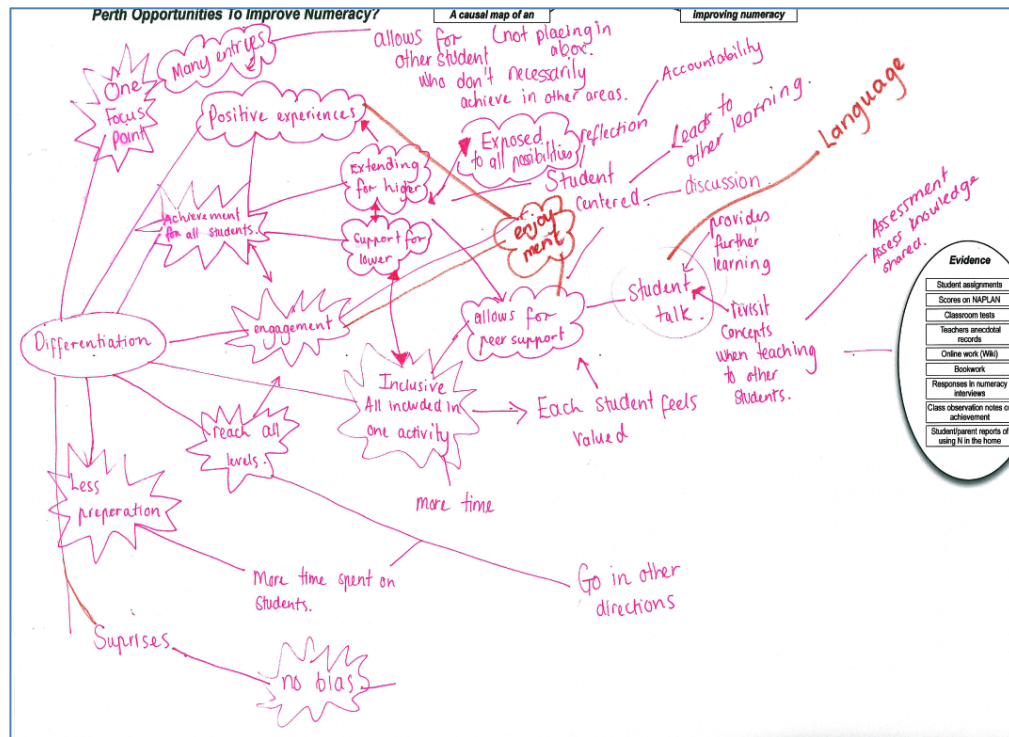 Perth Opportunities To Improve Numeracy?
A causal map of an
improving numeracy
Many entryes
allows for (not placing in
other student a box.
who don't necessarily
achieve in other areas.
One
Focus
Point
Positive experiences
Accountability
reflection
Exposed
to all possibilities
Leads to
other learning.
Language
Extending
for higher
Student
centered.
discussion
Achievement
for all students.
Support for
lower
enjoy
ment
provides
further
learning
Assessment
Assess knowledge
shared.
Student
talk.
engagement
allows for
peer support
revisit
concepts
when teaching
to other
students.
Differentiation
Inclusive
All included in
one activity
Each student feels
valued
reach all
levels.
more time
Less
preparation
More time spent on
students.
Go in other
directions
Suprises
no bias
Evidence
Student assignments
Scores on NAPLAN
Classroom tests
Teachers anecdotal
records
Online work (Wiki)
Bookwork
Responses in numeracy
interviews
Class observation notes on
achievement
Student/parent reports of
using N in the home